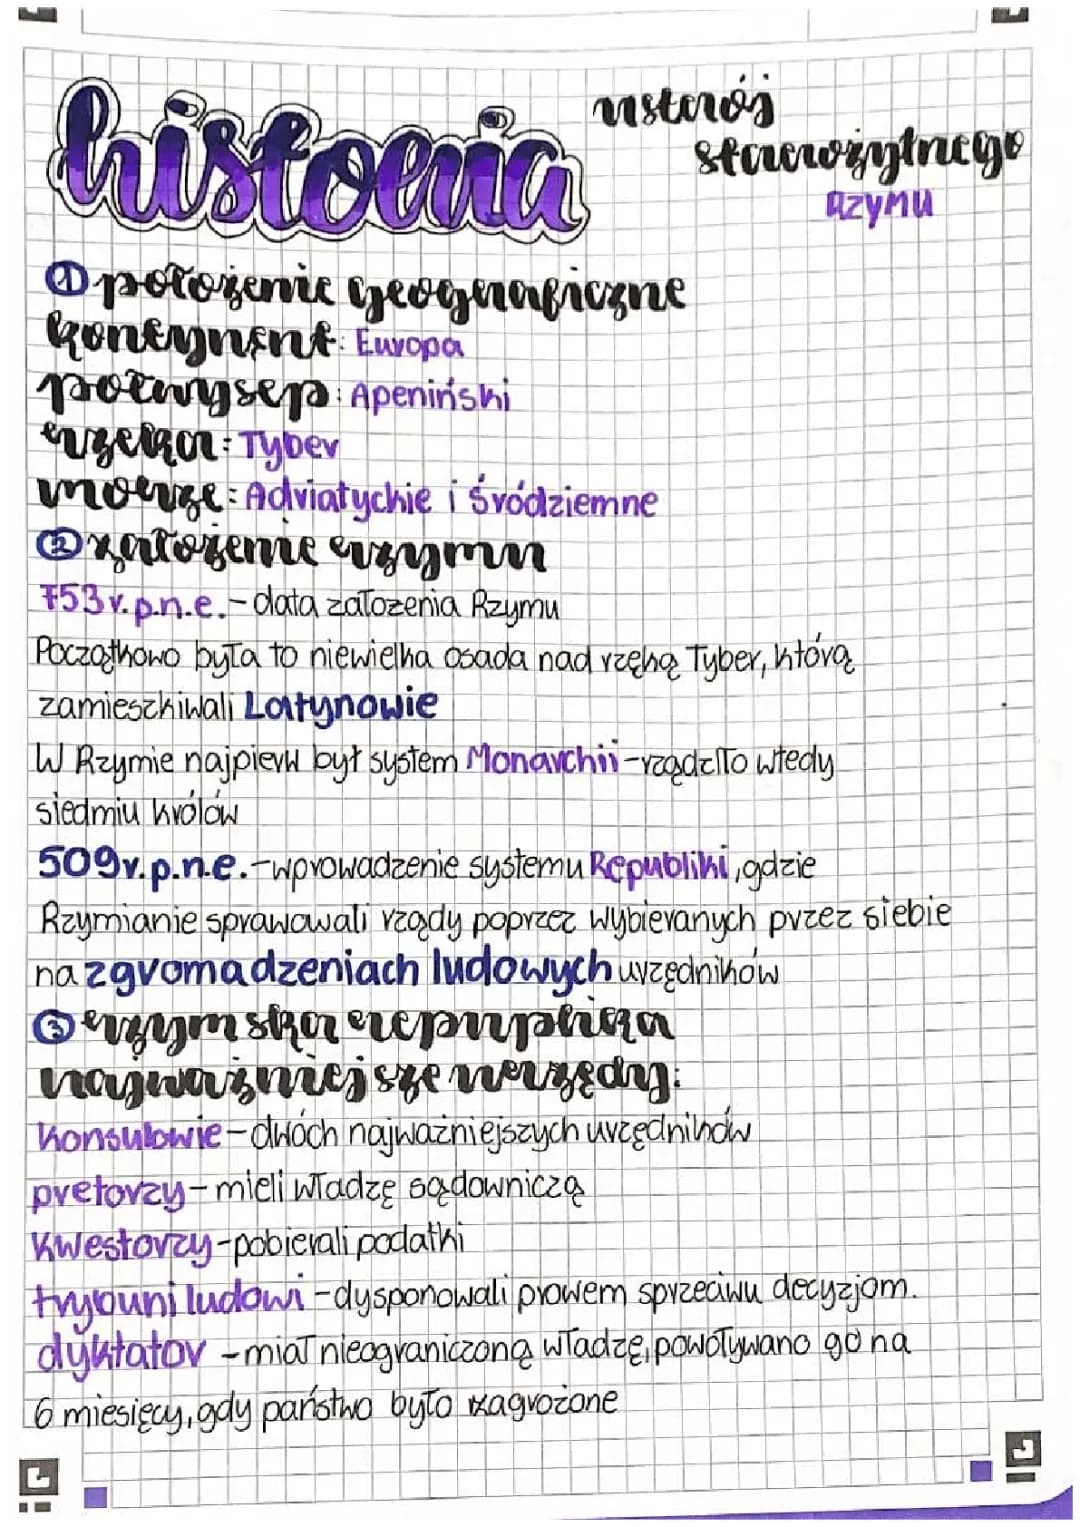 historia
ustrój
starożytnego
Rzymu
① położenie geograficzne
kontynent: Europa
półwysep: Apeniński
rzeka: Tyber
morze: Adriatyckie i Śródziemne
② założenie rzymu
753 r.p.n.e. - data założenia Rzymu
Początkowo była to niewielka osada nad rzęką Tyber, którą
zamieszkiwali Latynowie
W Rzymie najpierw był system Monarchii - rządziło wtedy
siedmiu królów
509 r.p.n.e. - wprowadzenie systemu Republiki, gdzie
Rzymianie sprawowali rządy poprzez wybieranych przez siebie
na zgromadzeniach ludowych urzędników
③ rzymska repuplika
najważniejsze urzędy:
Konsulowie - dwóch najważniejszych urzędników
pretorzy - mieli władzę sądowniczą
Kwestorzy - pobierali podatki
trybuni ludowi - dysponowali prawem sprzeciwu decyzjom.
dyktator - miał nieograniczoną władzę, powoływano go na
6 miesięcy, gdy państwo było zagrożone